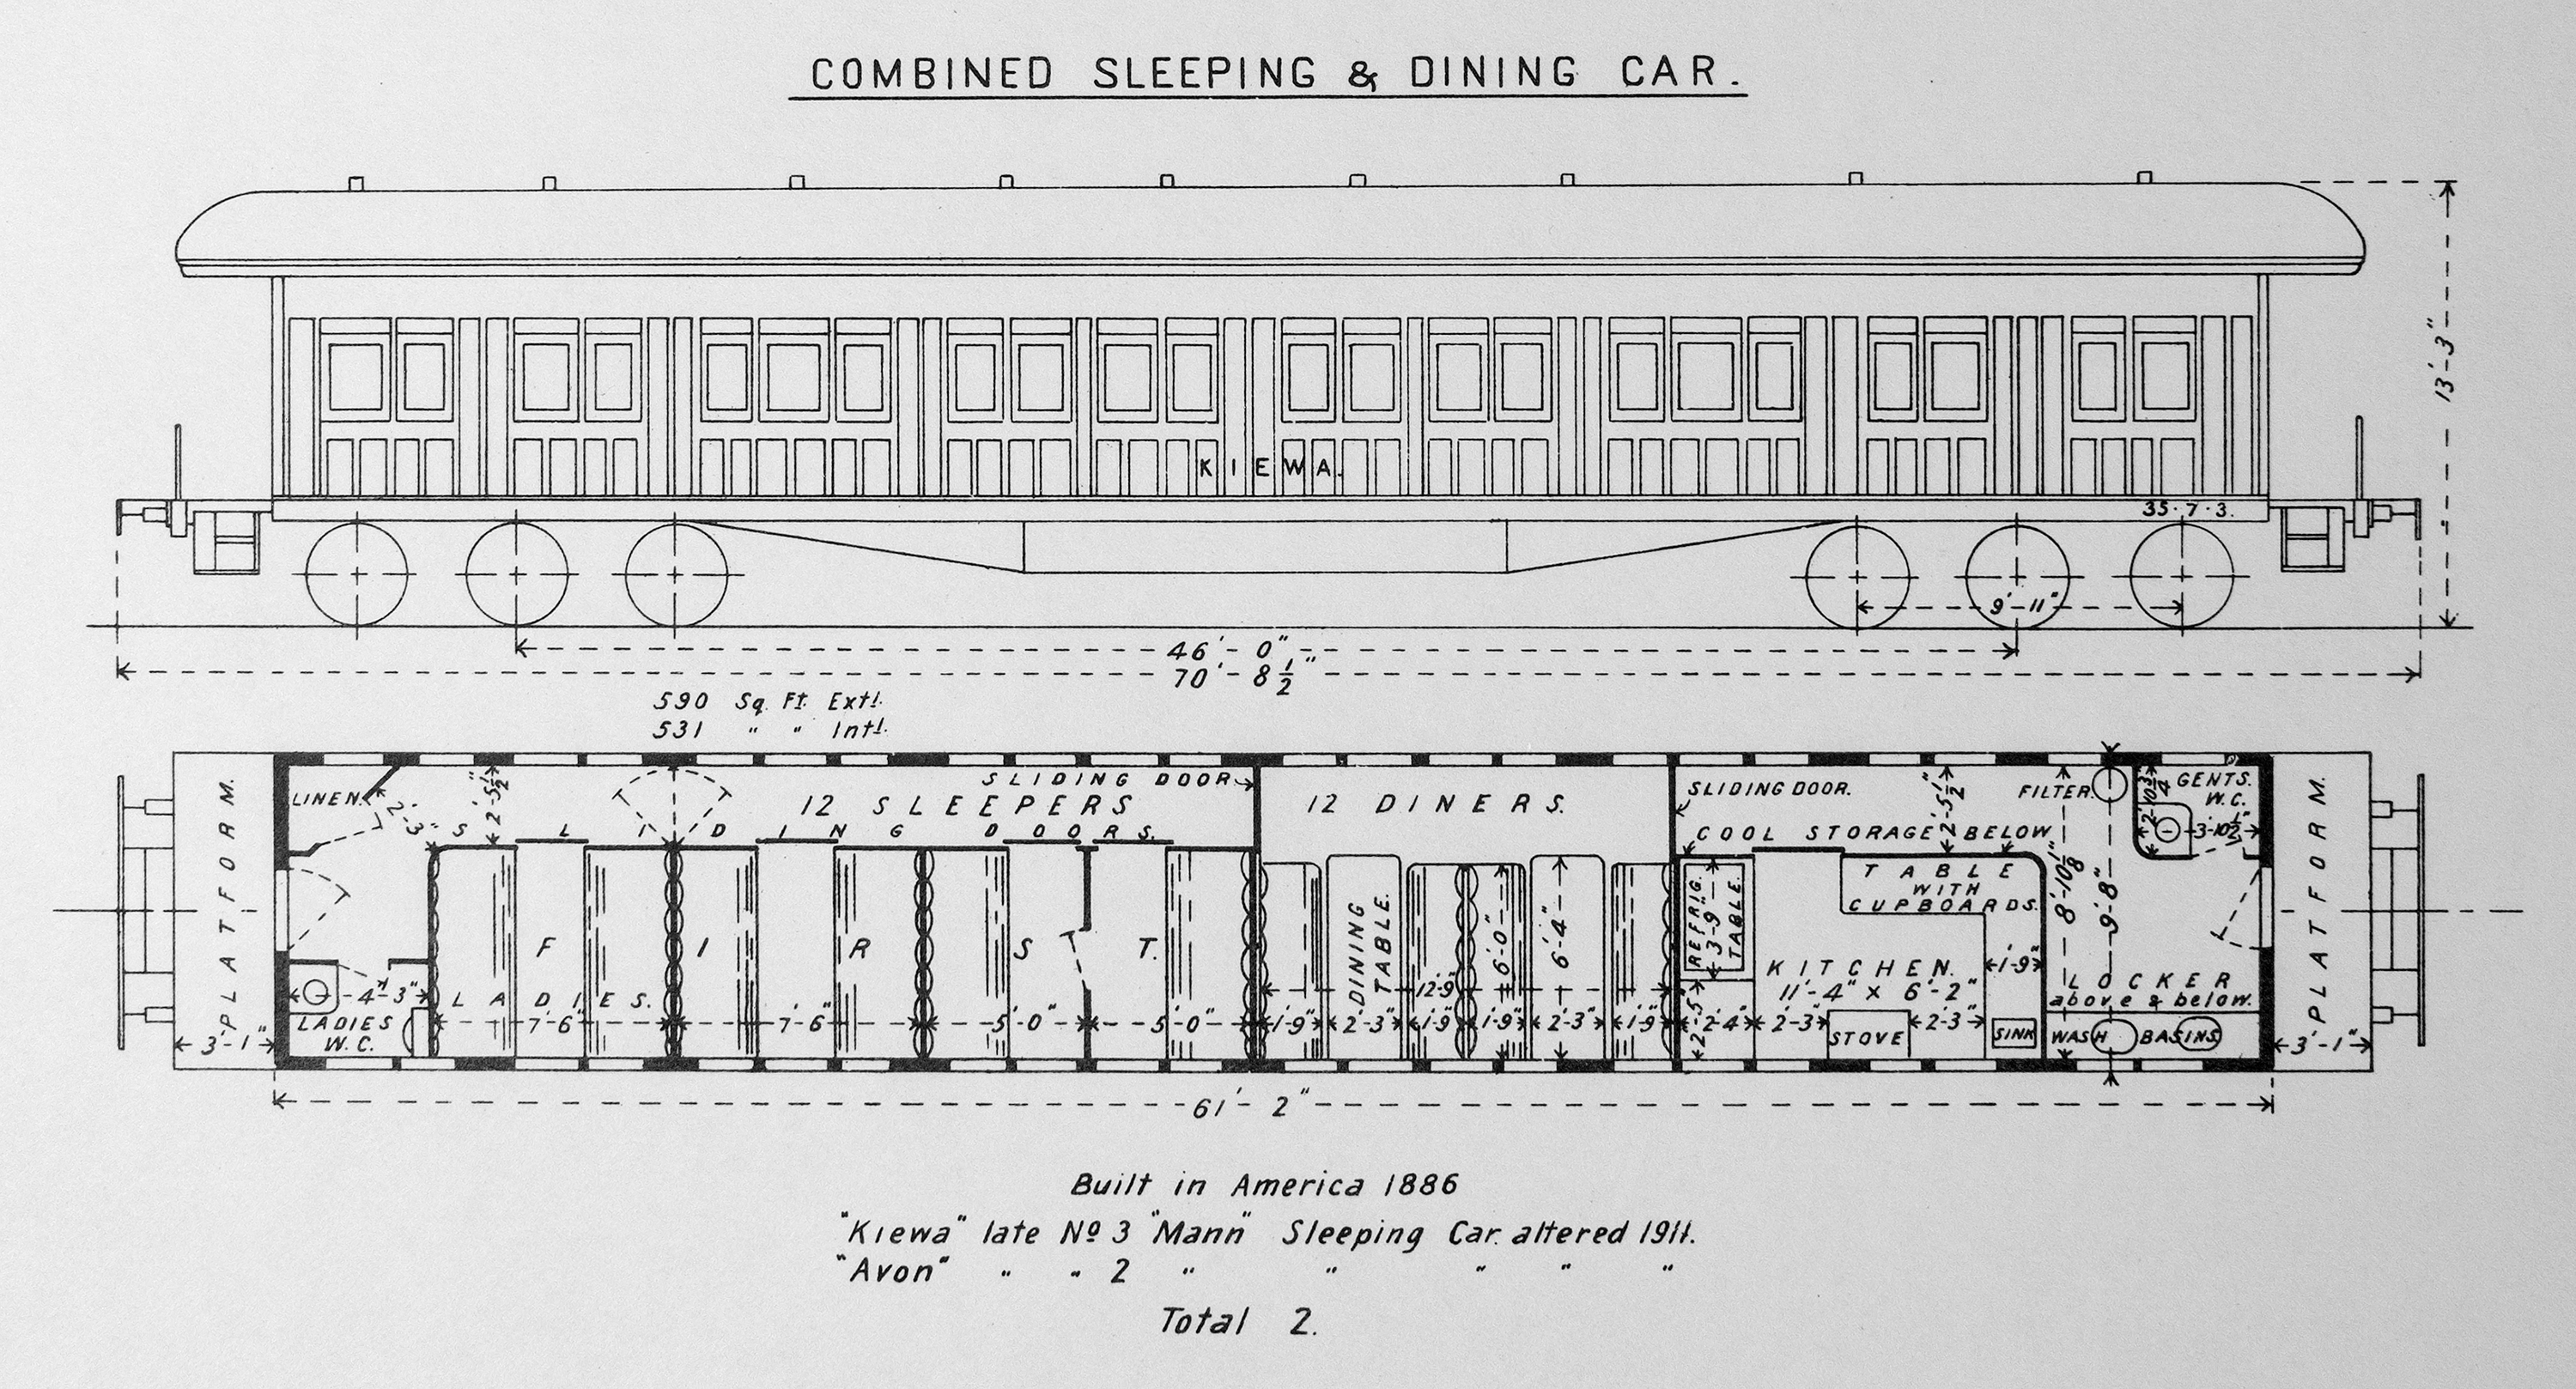 COMBINED SLEEPING & DINING CAR.
13'-3"
KIEWA.
35·7·3.
9'-11"
46'-0"
70'-8½"
590 Sq. Ft. Extl.
531 " " Intl.
PLATFORM.
3'-1"
LINEN.
2'-3"
2'-5½"
SLIDING DOOR.
12 SLEEPERS
SLIDING DOORS.
FIRST.
LADIES.
4'-3"
LADIES
W.C.
7'-6"
7'-6"
5'-0"
5'-0"
12 DINERS.
DINING
TABLE.
12'-9"
6'-0"
6'-4"
1'-9"
2'-3"
1'-9"
1'-9"
2'-3"
1'-9"
SLIDING DOOR.
COOL STORAGE BELOW
2'-5½"
REFRIG.
3'-9"
TABLE.
2'-5"
2'-4"
2'-3"
TABLE
WITH
CUPBOARDS.
KITCHEN.
11'-4" X 6'-2"
1'-9"
STOVE
2'-3"
SINK
FILTER.
8'-10⅛"
9'-8"
2'-10¾"
GENTS.
W.C.
3'-10½"
LOCKER
above & below.
WASH BASINS
PLATFORM.
3'-1"
61'-2"
Built in America 1886
"Kiewa" late Nº 3 "Mann" Sleeping Car. altered 1911.
"Avon" " " 2 " " " " "
Total 2.